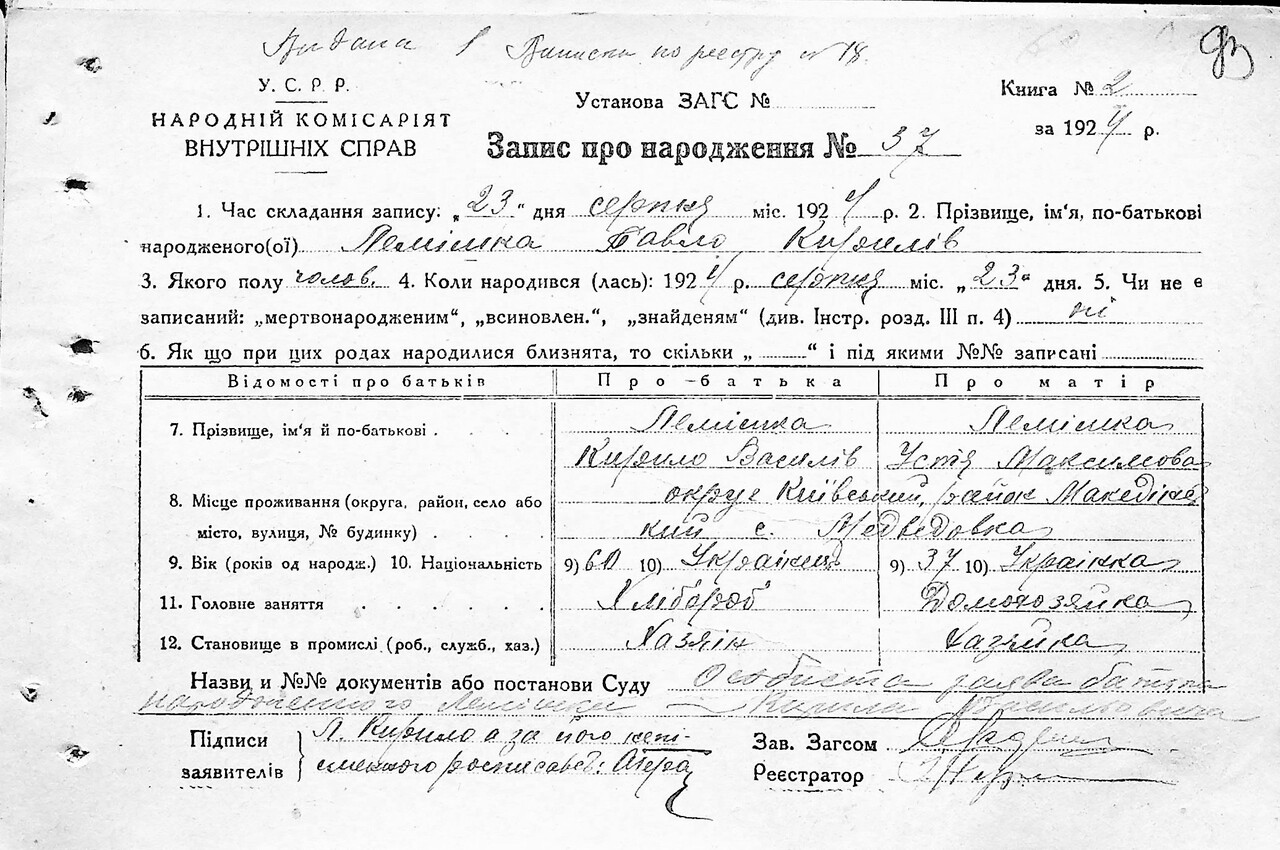 Видана 1 Виписка по реєстру № 18.
93
У. С. Р. Р.
НАРОДНІЙ КОМІСАРІЯТ
ВНУТРІШНІХ СПРАВ
Установа ЗАГС №
Книга № 2
за 1924 р.
Запис про народження № 37
1. Час складання запису: „23“ дня серпня міс. 1924 р. 2. Прізвище, ім'я, по-батькові
народженого(ої) Лемішка Павло Кирилів
3. Якого полу чолов. 4. Коли народився (лась): 1924 р. серпня міс. „23“ дня. 5. Чи не є
записаний: „мертвонародженим“, „всиновлен.“, „знайденям“ (див. Інстр. розд. III п. 4) ні
6. Як що при цих родах народилися близнята, то скільки „ “ і під якими №№ записані
Відомості про батьків Про-батька Про матір
7. Прізвище, ім'я й по-батькові . . . . Лемішка Лемішка
Кирило Василів Устя Максимова
8. Місце проживання (округа, район, село або округ Київський, район Македінс
місто, вулиця, № будинку) . . . . кий с. Медведовка
9. Вік (років од народж.) 10. Національність 9) 60 10) Українець 9) 37 10) Українка
11. Головне заняття . . . . . . Хлібороб Домохозяйка
12. Становище в промислі (роб., служб., хаз.) Хазяін Хазяйка
Назви и №№ документів або постанови Суду Особиста заява батька
народженного Лемішки Кирила Васильовича
Підписи
заявителів
Л. Кирило а за його непі-
сменного росписавсь:
Зав. Загсом
Реєстратор